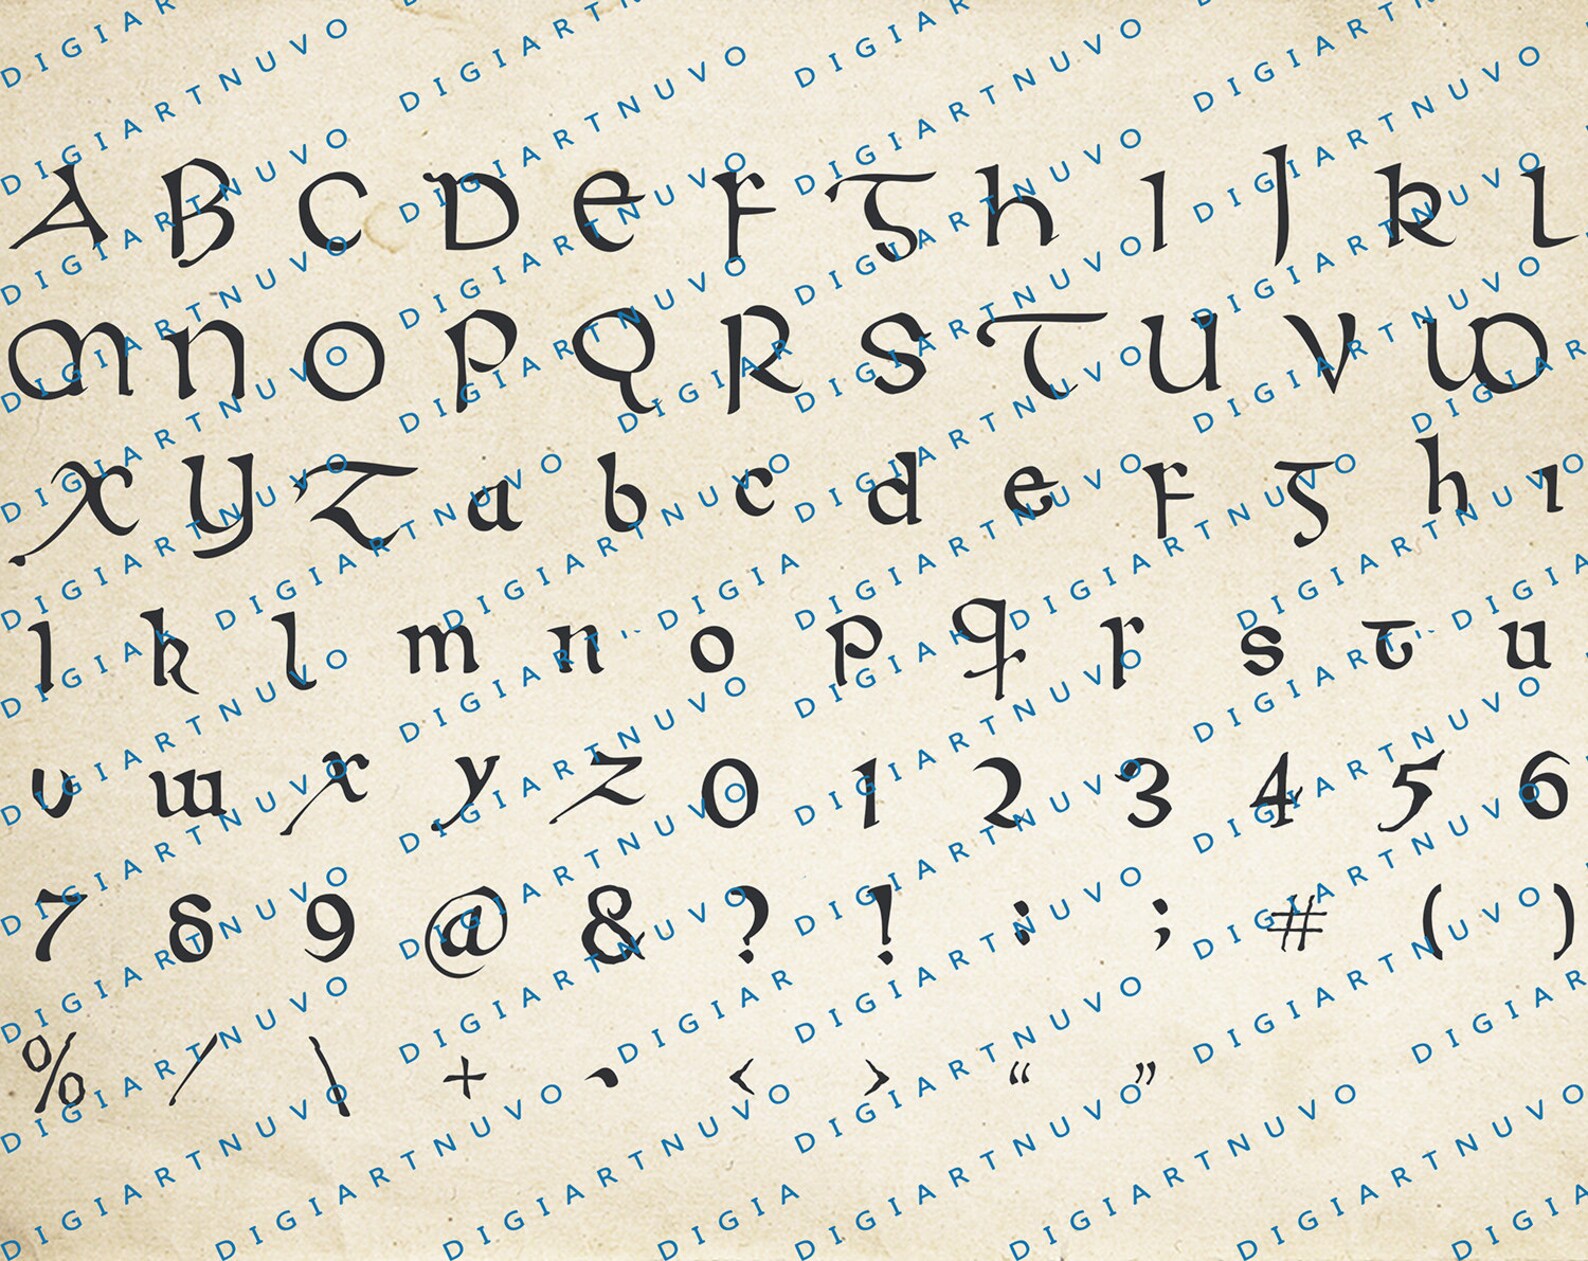 A B C D E F G H I J K L
M N O P Q R S T U V W
X Y Z a b c d e f g h i
j k l m n o p q r s t u
v w x y z 0 1 2 3 4 5 6
7 8 9 @ & ? ! : ; # ( )
% / \ + ` < > “ ”
DIGIARTNUVO